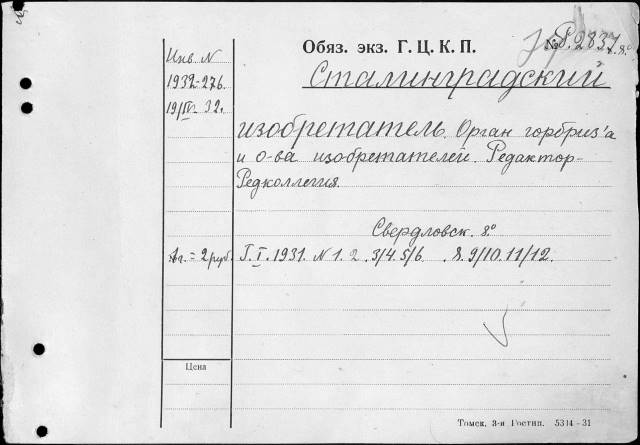 Обяз. экз. Г. Ц. К. П.
№ Р. 2837. 8°
Инв. N
1932-276.
19/III 32.
Сталинградский
изобретатель. Орган горбриз'а
и о-ва изобретателей. Редактор-
Редколлегия.
Свердловск. 8°
1г. = 2 руб. Г. I. 1931. N 1. 2. 3/4. 5/6. 8. 9/10. 11/12.
Цена
Томск, 3-я Гостип. 5314-31